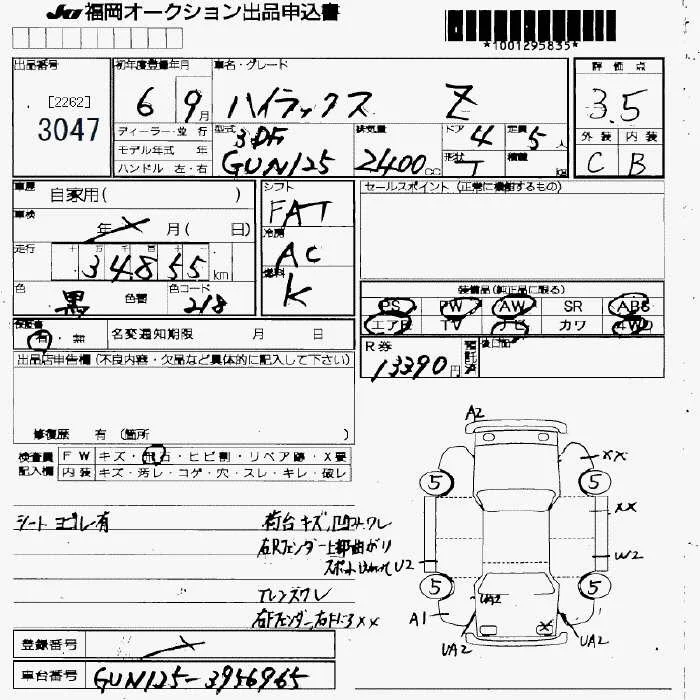 JU 福岡オークション出品申込書
*1001295835*
出品番号 初年度登録年月 車名・グレード 評価点
[2262]
3047
6 9月 ハイラックス Z 3.5
ディーラー・並行 型式 3DF 排気量 ドア 4 定員 5人 外装 内装
モデル年式 年
ハンドル 左・右 GUN125 2400cc 形状 T 積載 kg C B
車歴 自家用( ) シフト セールスポイント (正常に機能するもの)
FAT
車検 年 月( 日) 冷房
AC
走行 十 万 千 百 十
34855km 燃料
K
色 黒 色替 色コード 218
装備品(純正品に限る)
PS PW AW SR ABS
エアB TV ナビ カワ 4WD
保証書 有・無 名変通知期限 月 日
R券 13390円 預託済 後日記
出品店申告欄(不良内容・欠品など具体的に記入して下さい)
修復歴 有 (箇所 )
検査員 FW キズ・飛石・ヒビ割・リペア跡・X要
記入欄 内装 キズ・汚レ・コゲ・穴・スレ・キレ・破レ
シート ヨゴレ有 荷台キズ,凹コワレ
右Rフェンダー上部曲がり
U2
Iレンズワレ
右Fフェンダー,右Fドア XX
A2
XX
5 5
XX
W2
5 5
UA2
A1
UA2 UA2
X
登録番号
車台番号 GUN125-3956965